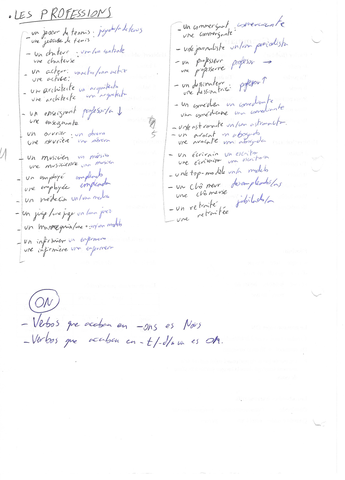 . LES PROFESSIONS
- un joueur de tennis jugador/a de tenis
une joueuse de tenis
- un chateur
une chateuse
- un acteur
une actrice
- un architecte un arquitecto
une architecte una arquitecta
- un enseignant profesor/a ↓
une enseignante
- un ouvrier un obrero
une ouvrière una obrera
- un musicien un músico
une musicienne una música
- un employé empleado
une employée empleada
- un médecin
- un juge/une juge un juez
- un infirmier un enfermero
une infirmière una enfermera
- un commerçant un comerciante
une commerçante
- un/e journaliste un/una periodista
- un professeur profesor →
une professeure
- un dessinateur
une dessinatrice
- un comédien un comediante
une comédienne una comediante
- un/e astronaute un/una astronauta
- un avocat un abogado
une avocate una abogada
- un écrivain un escritor
une écrivaine una escritora
- un/e top-model un/a modelo
- un chômeur desempleado/a
une chômeuse
- un retraité jubilado/a
une retraitée
ON
- Verbos que acaban en -ons es Nous
- Verbos que acaban en -t/-d/-a es on.